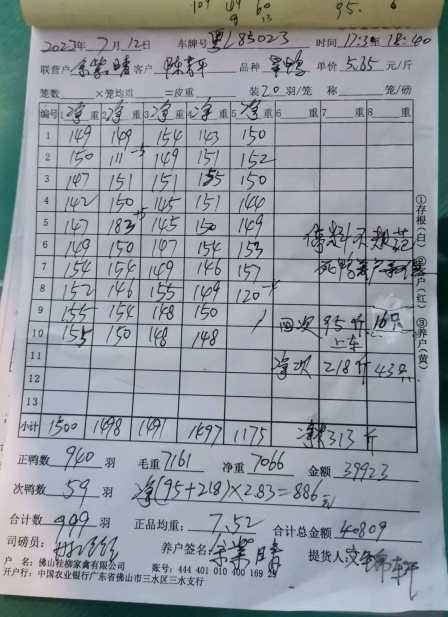 109 49 60 95. 6
2023年7月12日 车牌号粤L85023 时间17:30至18:40
联营户 余紫晴 客户 陈 平 品种 鸭 单价 5.65 元/斤
笼数 ×笼均重 =皮重 装20羽/笼 称 笼/磅
编号 1净重 2净重 3净重 4净重 5净重 6 重 7 重 8 重
1 149 149 154 143 150
2 150 111-5 149 151 152
3 147 151 151 155 150
4 142 150 145 151 144
5 147 183+5 145 150 149 停料不规范
6 149 150 147 154 153
7 154 154 149 146 157 死鸭养户
8 152 146 155 149 120-4
9 155 154 148 150 回次 95斤 16只
10 155 150 148 148 上车
11 净次 218斤 43只
12
13
小计 1500 1498 1491 1497 1175 净 313斤
正鸭数 940 羽 毛重 7161 净重 7066 金额 39923
次鸭数 59 羽 净(95+218)×2.83=886元
合计数 999 羽 正品均重: 7.52 合计总金额 40809
司磅员: 养户签名: 余紫晴 提货人:
户 名: 佛山 柳家禽有限公司 账号: 444 401 010 400 169 29
开户行: 中国农业银行广东省佛山市三水区三水支行
①存根(白) ②客户(红) ③养户(黄)